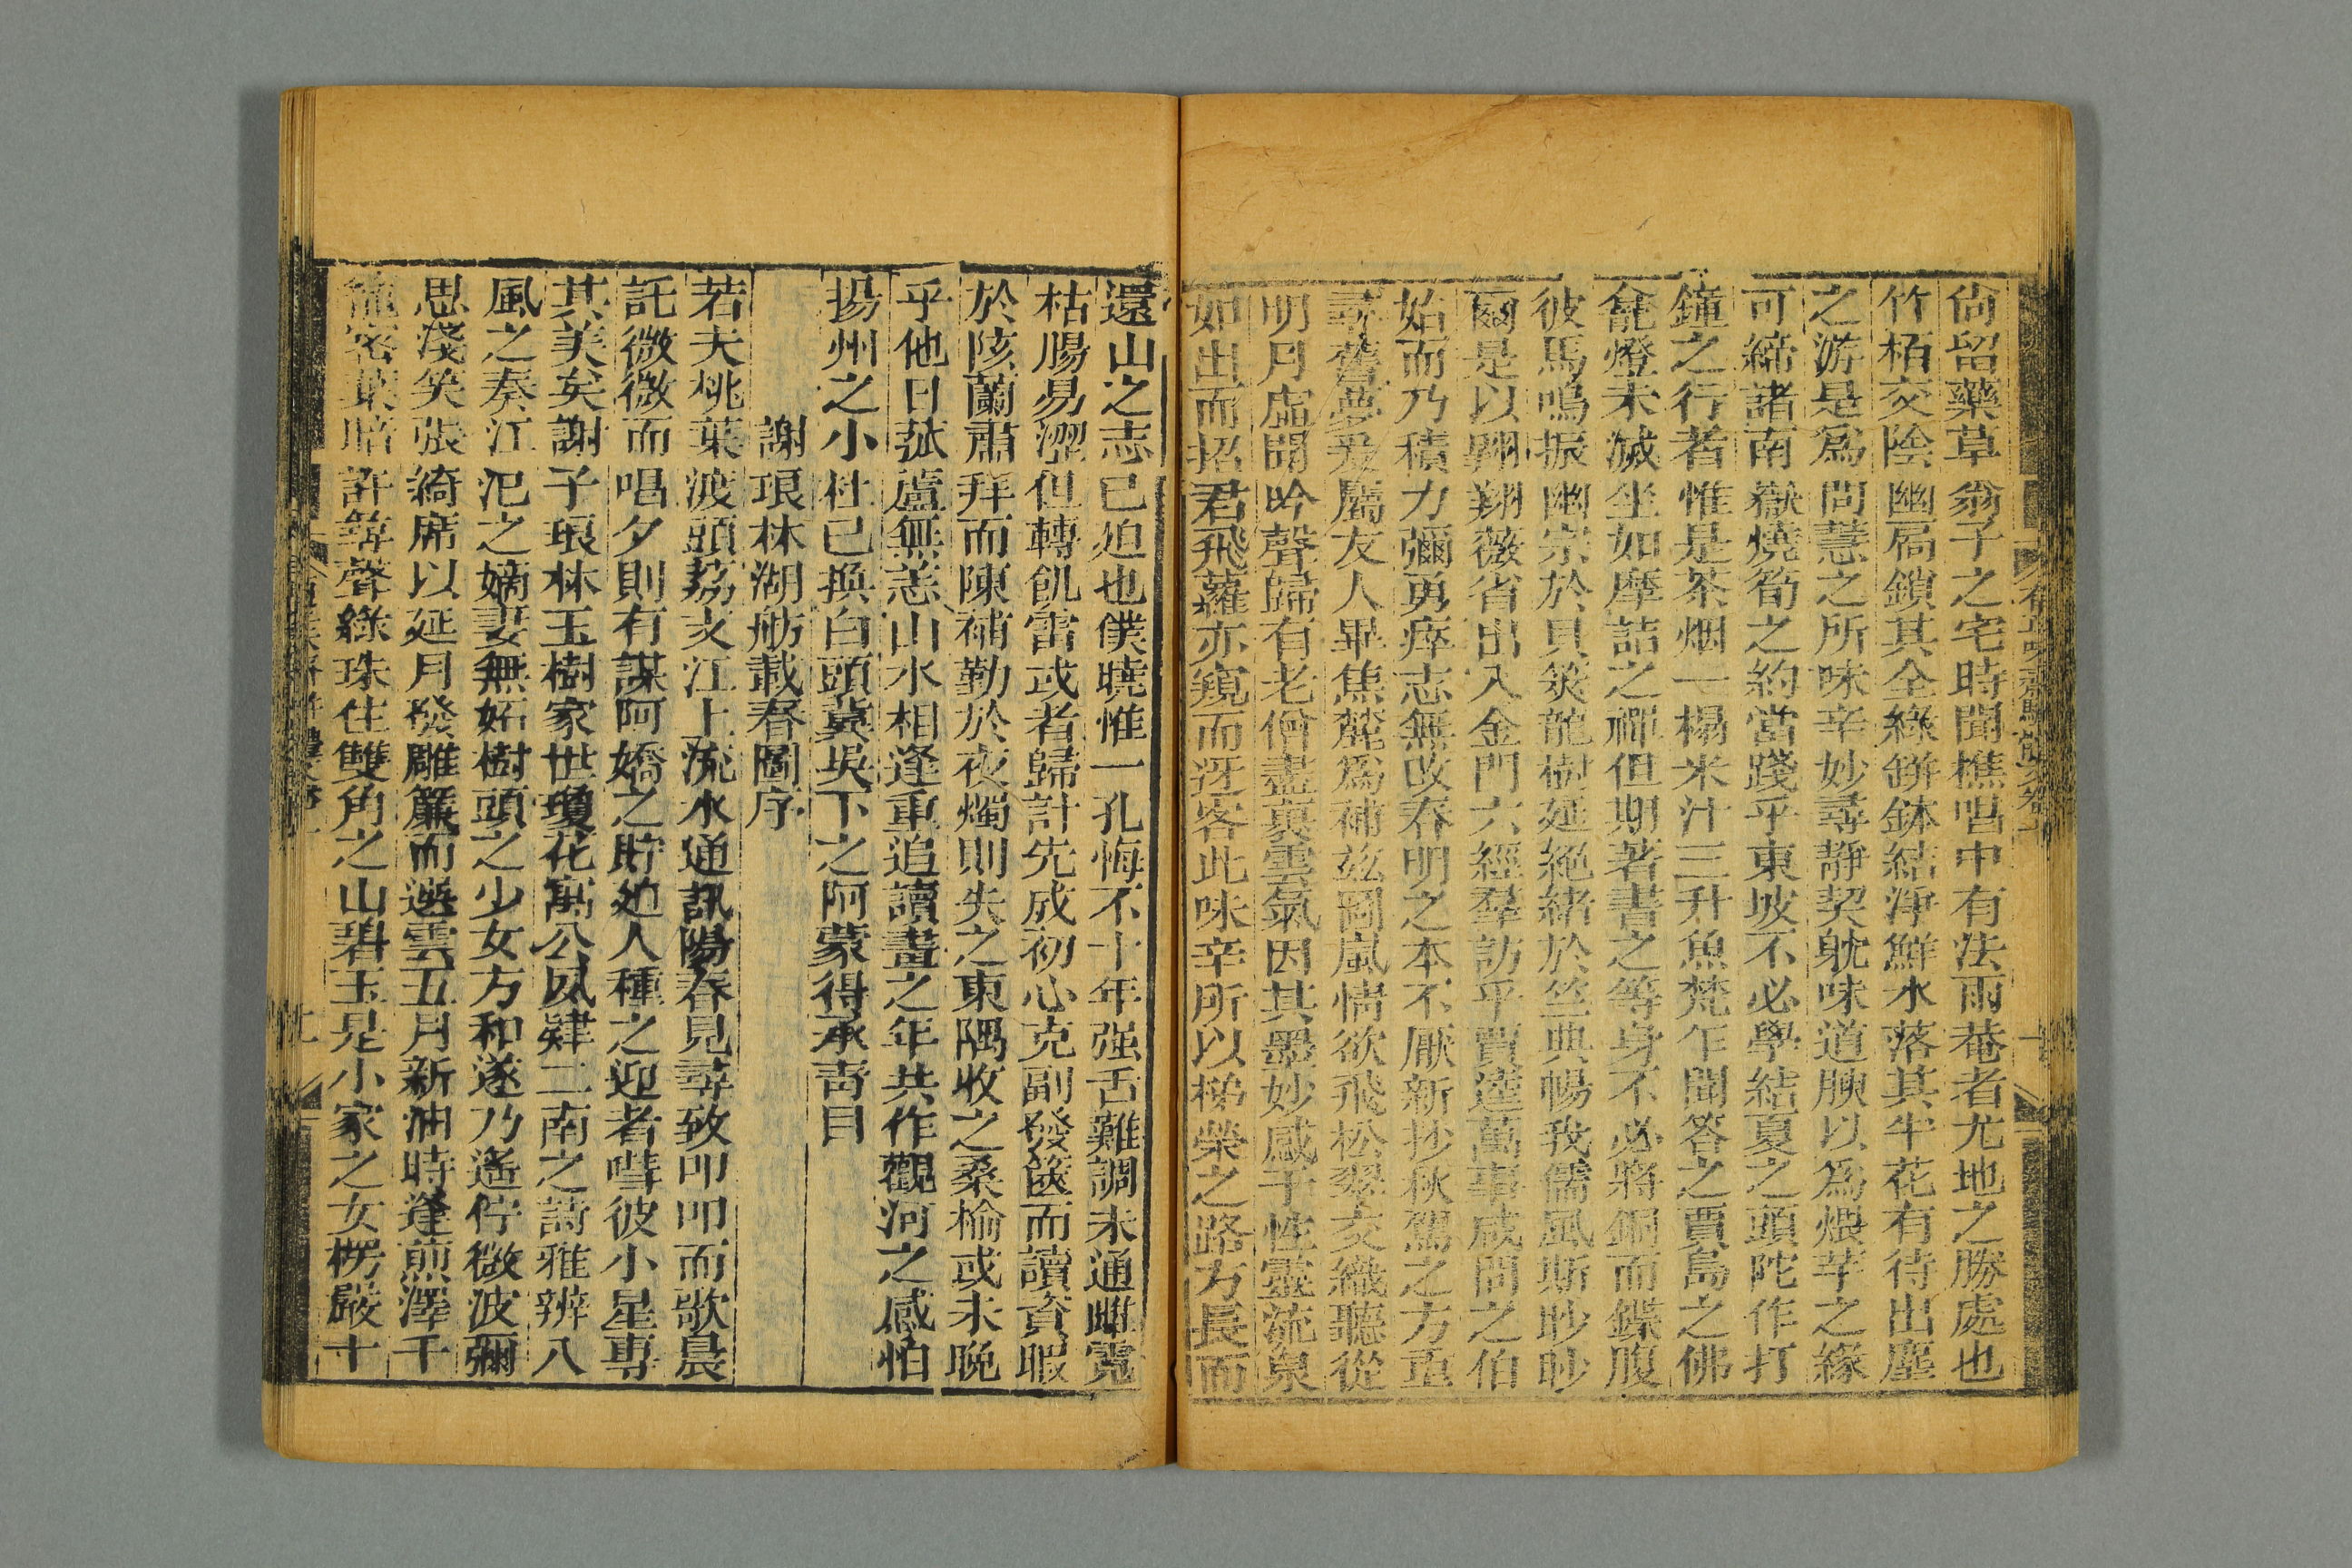 尙留藥草翁子之宅時聞樵唱中有法雨菴者尤地之勝處也
竹栢交陰幽扃鎖其全綠缾鉢結淨鮮水落其半花有待出塵
之游是爲問慧之所味辛妙尋靜契躭味道腴以爲煨芋之緣
可締諸南嶽燒筍之約當踐乎東坡不必學結夏之頭陀作打
鐘之行者惟是茶烟一榻米汁三升魚梵乍聞答之賈島之佛
龕燈未滅坐如摩詰之禪但期著書之等身不必將銅而鍱腹
彼馬鳴振幽宗於貝筴龍樹延絕緖於竺典暢我儒風斯眇眇
爾是以翺翔薇省出入金門六經羣訪乎賈逵萬事咸問之伯
始而乃積力彌勇瘁志無改春明之本不厭新抄秋駕之方重
尋舊夢爰屬友人畢焦麓爲補茲圖嵐情欲飛松翠交織聽從
明月虛聞吟聲歸有老僧盡裹雲氣因其墨妙感予性靈流泉
如出而招君飛蘿亦窺而迓客此味辛所以梯榮之路方長而
還山之志已迫也僕曉惟一孔悔不十年强舌難調未通雌霓
枯腸易澀但轉飢雷或者歸計先成初心克副發篋而讀資暇
於陔蘭肅拜而陳補勤於夜燭則失之東隅收之桑楡或未晚
乎他日菰蘆無恙山水相逢重追讀畫之年共作觀河之感怕
揚州之小杜已換白頭冀吳下之阿蒙得承靑目
謝琅林湖舫載春圖序
若夫桃葉渡頭荔支江上流水通訊陽春見尋致叩叩而歌晨
託微微而唱夕則有謀阿嬌之貯廼人種之迎者嘒彼小星專
其美矣謝子琅林玉樹家世瓊花寓公夙肄二南之詩雅辨八
風之奏江汜之嫡妻無妬樹頭之少女方和遂乃遙佇微波彌
思淺笑張綺席以延月發雕簾而選雲五月新油時逢煎澤千
籠密葉暗許箏聲綠珠住雙角之山碧玉是小家之女楞嚴十